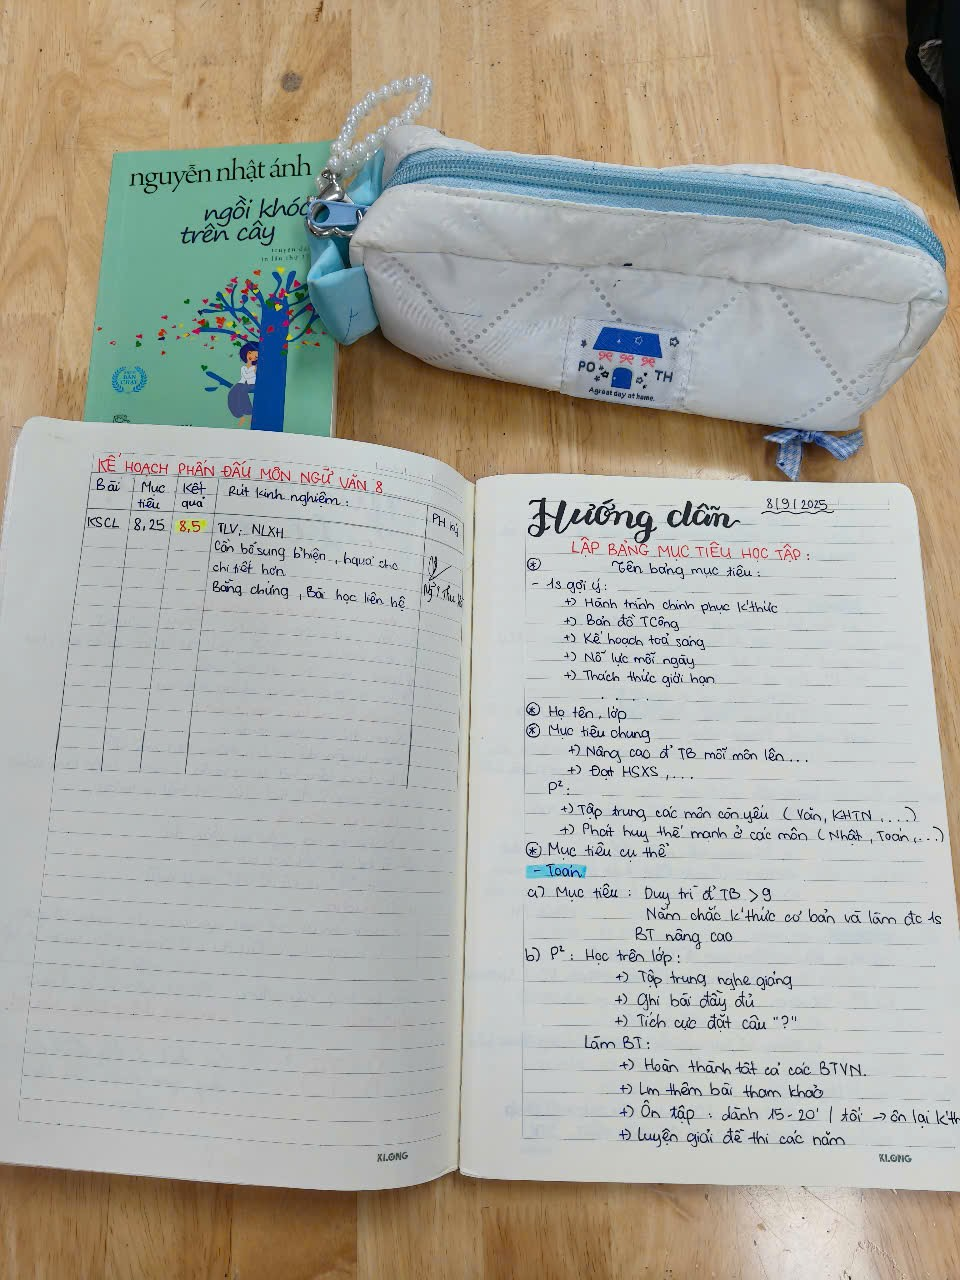 nguyễn nhật ánh
ngồi khóc
trên cây
PO TH
A great day at home.
KẾ HOẠCH PHẤN ĐẤU MÔN NGỮ VĂN 8
Bài Mục tiêu Kết quả Rút kinh nghiệm: PH ký
KSCL 8,25 8,5 TLV: NLXH
Cần bổ sung b'hiện, hquả cho
chi tiết hơn
Bằng chứng, Bài học liên hệ
8/9/2025
Hướng dẫn
LẬP BẢNG MỤC TIÊU HỌC TẬP:
* Tên bảng mục tiêu:
- 1s gợi ý:
+) Hành trình chinh phục k'thức
+) Bản đồ TCông
+) Kế hoạch toả sáng
+) Nỗ lực mỗi ngày
+) Thách thức giới hạn
. . . .
* Họ tên, lớp
* Mục tiêu chung
+) Nâng cao đ' TB mỗi môn lên...
+) Đạt HSXS,...
P²:
+) Tập trung các môn còn yếu (Văn, KHTN,...)
+) Phát huy thế mạnh ở các môn (Nhật, Toán,...)
* Mục tiêu cụ thể
- Toán
a) Mục tiêu: Duy trì đ' TB > 9
Nắm chắc k'thức cơ bản và làm đc 1s
BT nâng cao
b) P²: Học trên lớp:
+) Tập trung nghe giảng
+) Ghi bài đầy đủ
+) Tích cực đặt câu "?"
Làm BT:
+) Hoàn thành tất cả các BTVN.
+) Lm thêm bài tham khảo
+) Ôn tập: dành 15-20' / tối → ôn lại k'th
+) Luyện giải đề thi các năm
KLONG
KLONG